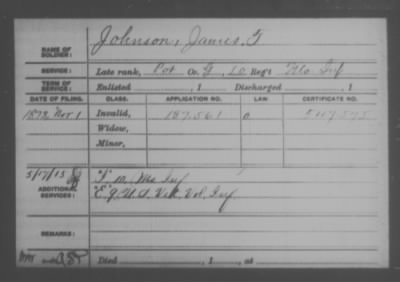 Johnson, James, F
NAME OF SOLDIER:
SERVICE: Late rank, Pvt Co. G, 10 Reg't Mo Inf
TERM OF SERVICE: Enlisted , 1 Discharged , 1
DATE OF FILING. CLASS. APPLICATION NO. LAW CERTIFICATE NO.
1872, Nov 1 Invalid, 187.561
Widow,
Minor,
ADDITIONAL SERVICES: "F" 10, Mo Inf
"E" 9, U.S. Vet. Vol. Inf
REMARKS:
Died , 1 , at